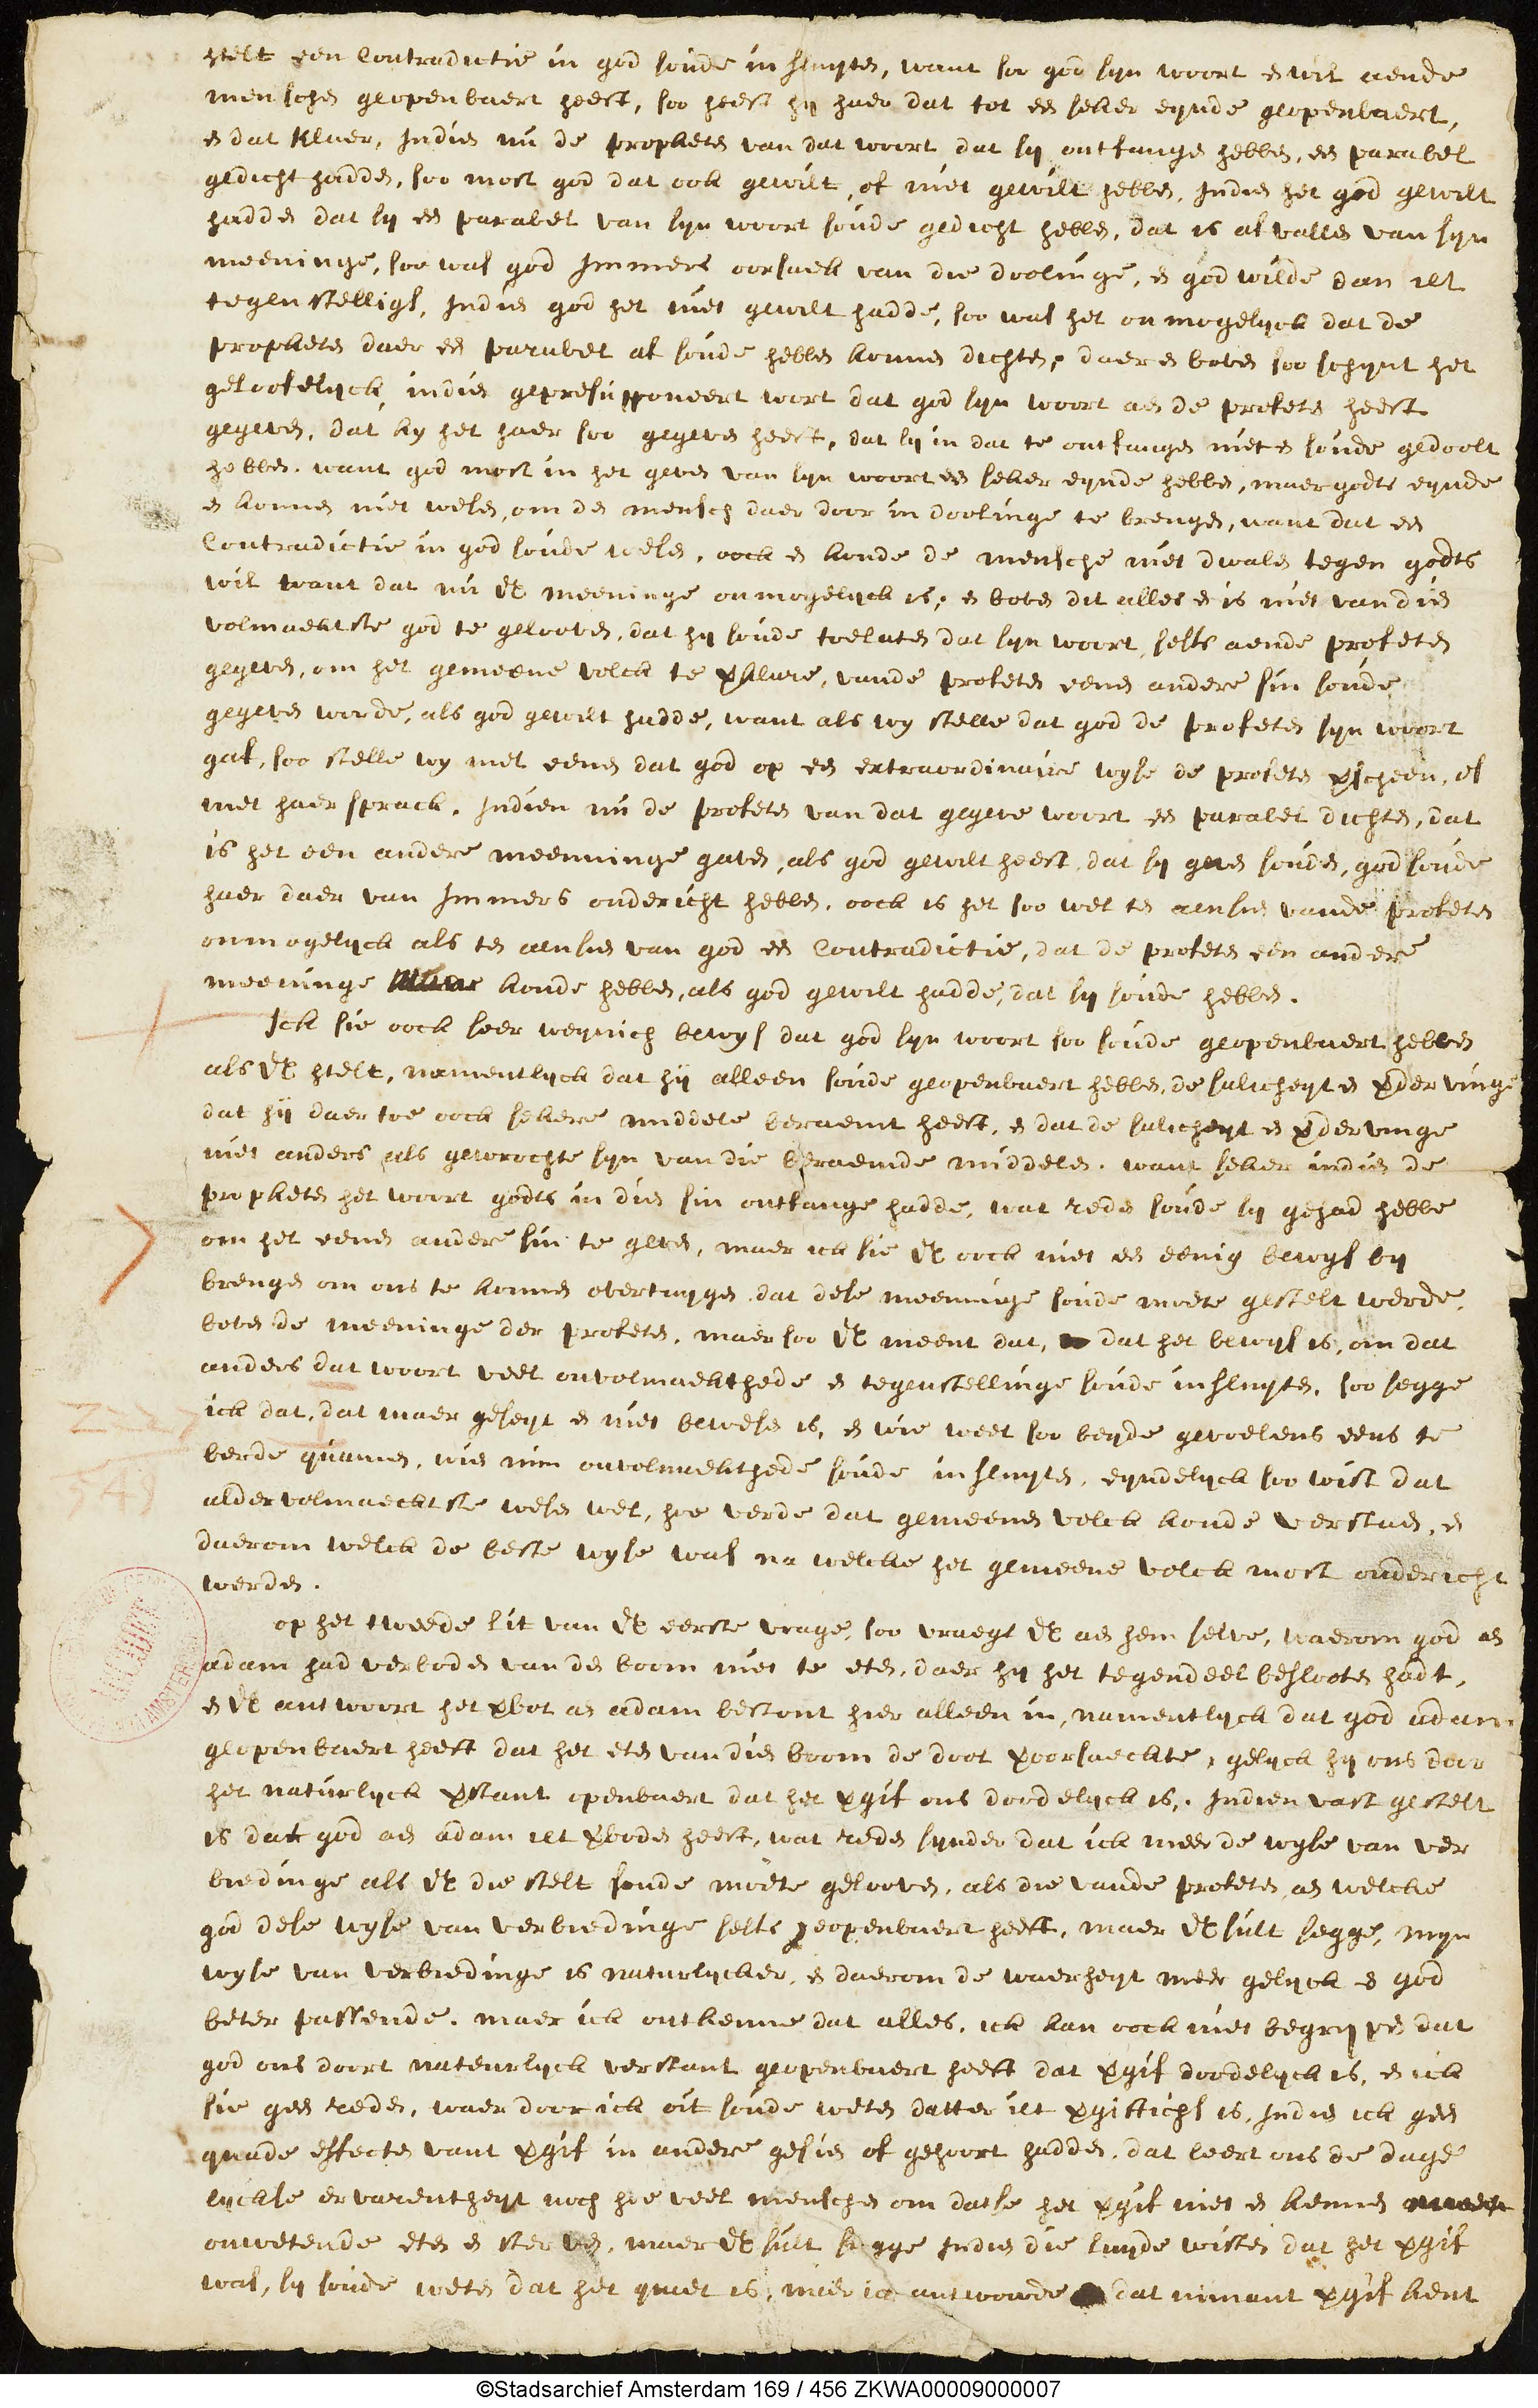 stelt een Contradictie in god soude in sluyten, want soo god syn woort en wil aende
menschen geopenbaert heeft, soo heeft hy haer dat tot een seker eynde geopenbaert,
en dat klaer, Indien nu de propheten van dat woort dat sy ontfangen hebben, een parabel
gedicht hadden, soo most god dat ook gewilt, of niet gewilt hebben, Indien het god gewilt
hadden dat sy een parabel van syn woort soude gedicht hebben, dat is afvallen van syn
meeninge, soo was god Immers oorsaek van die doolinge, en god wilde dan iet
tegenstelligs, Indien god het niet gewilt hadde, soo was het onmogelyck dat de
propheten daer een parabel af soude hebben konnen dichten, daer en boven soo schynt het
gelooflyck, indien gepresupponeert wort dat god syn woort aen de profeten heeft
gegeven, dat hy het haer soo gegeven heeft, dat sy in dat te ontfangen niet en soude gedoolt
hebben. want god most in het geven van syn woort een seker eynde hebben, maer godts eynde
en konnen niet wesen, om den mensch daer door in doolinge te brengen, want dat een
Contradictie in god soude wesen. oock en konde de mensche niet dwalen tegen godts
wil want dat nu UE meeninge onmogelyck is; en boven dit alles en is niet van dien
volmaektste god te gelooven, dat hy soude toelaten dat syn woort, selfs aende profeten
gegeven, om het gemeene volck te verklare, vande profeten eenen andere sin soude
gegeven worde, als god gewilt hadde, want als wy stelle dat god de profeten syn woort
gaf, soo stelle wy met eenen dat god op een extraordinaire wyse de profeten verscheen, of
met haer sprack. Indien nu de profeten van dat gegeve woort een parabel dichten, dat
is het een andere meeninge gaven, als god gewilt heeft, dat sy geven souden, god soude
haer daer van Immers ondericht hebben. oock is het soo wel ten aensien vande profeten
onmogelyck als ten aensien van god een Contradictie, dat de profeten een andere
meeninge konde hebben, als god gewilt hadde, dat sy soude hebben.
Ick sie oock seer weynich bewys dat god syn woort soo soude geopenbaert hebben
als UE stelt, namentlyck dat hij alleen soude geopenbaert hebben, de salicheyt en verdervinge
dat hij daer toe oock sekere middele beraemt heeft, en dat de salicheyt en verdervinge
niet anders als gewrochte syn van die beraemde middelen. want seker indien de
propheten het woort godts in dien sin ontfange hadde, wat reden soude sy gehad hebbe
om het eenen andere sin te geven, maer ick sie UE oock niet een eenig bewys by
brengen om ons te konnen overtuygen dat dese meeninge soude moete gestelt werde,
boven de meeninge der profeten. maer soo UE meent dat, dat het bewys is, om dat
anders dat woort veel onvolmaekthede en tegenstellinge soude insluyten, soo segge
ick dat, dat maer geseyt en niet bewesen is, en wie weet soo beyde gevoelens eens te
berde quamen, wien min onvolmaekthede soude insluyten, eyndelyck soo wist dat
aldervolmaecktste wesen wel, hoe verde dat gemeenen volck konde verstaen, en
daerom welck de beste wyse was na welcke het gemeene volck most ondericht
werden.
op het tweede lit van UE eerste vrage, soo vraegt UE aen hem selve, waerom god aen
adam had verboden van den boom niet te eten, daer hy het tegendeel besloten hadt,
en UE antwoort het verbot aen adam bestont hier alleen in, namentlyck dat god adam
geopenbaert heeft dat het eten van dien boom de doot veroorsaeckte, gelyck hy ons door
het naturlyck verstant openbaert dat het vergif ons doodelyck is,. Indien vast gestelt
is dat god aen adam iet verboden heeft, wat reden synder dat ick meer de wyse van ver
biedinge als UE die stelt soude moete gelooven, als die vande profeten, aen welcke
god dese wyse van verbiedinge selfs geopenbaert heeft, maer UE sult segge, myn
wyse van verbiedinge is naturlycker, en daerom de waerheyt meer gelyck en god
beter passende. maer ick ontkenne dat alles, ick kan oock niet begrypen dat
god ons doort natuerlyck verstant geopenbaert heeft dat vergif doodelyck is, en ick
sie geen reden, waer door ick oit soude weten datter iet vergiftichs is, Indien ick geen
quade effecten vant vergif in andere gesien of gehoort hadden, dat leert ons de dage
lyckse ervarentheyt noch hoe veel menschen om datse het vergif niet en kennen
onwetende eten en sterven, maer UE sult segge Indien die luyde wisten dat het vergif
was, sy soude weten dat het quaet is, maer ick antwoorde dat nimant vergif kent
©Stadsarchief Amsterdam 169 / 456 ZKWA00009000007